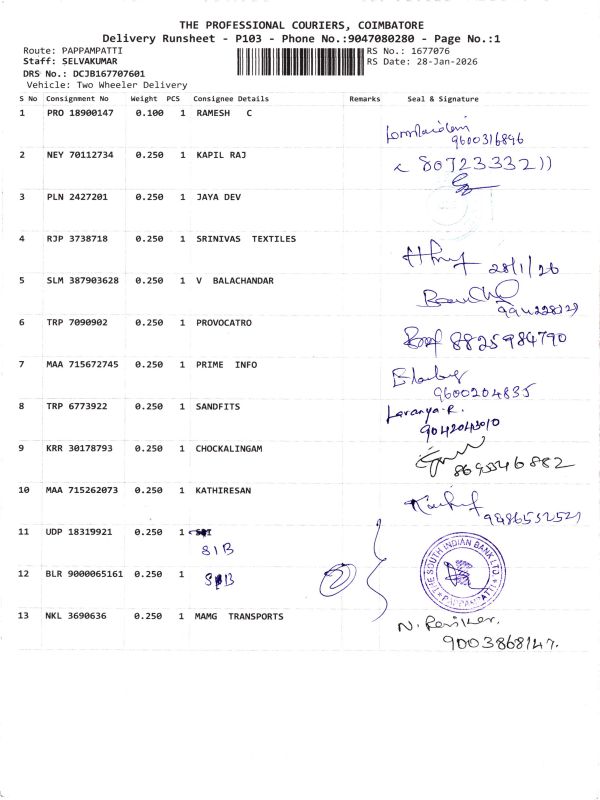 THE PROFESSIONAL COURIERS, COIMBATORE
Delivery Runsheet - P103 - Phone No.:9047080280 - Page No.:1
Route: PAPPAMPATTI RS No.: 1677076
Staff: SELVAKUMAR RS Date: 28-Jan-2026
DRS No.: DCJB167707601
Vehicle: Two Wheeler Delivery
S No Consignment No Weight PCS Consignee Details Remarks Seal & Signature
1 PRO 18900147 0.100 1 RAMESH C
9600316896
2 NEY 70112734 0.250 1 KAPIL RAJ
80723332))
3 PLN 2427201 0.250 1 JAYA DEV
4 RJP 3738718 0.250 1 SRINIVAS TEXTILES
28/1/26
5 SLM 387903628 0.250 1 V BALACHANDAR
6 TRP 7090902 0.250 1 PROVOCATRO
8825984790
7 MAA 715672745 0.250 1 PRIME INFO
9600204835
8 TRP 6773922 0.250 1 SANDFITS
Laranya.R.
9042043010
9 KRR 30178793 0.250 1 CHOCKALINGAM
10 MAA 715262073 0.250 1 KATHIRESAN
9486532521
11 UDP 18319921 0.250 1
SIB
12 BLR 9000065161 0.250 1 SIB
THE SOUTH INDIAN BANK LTD.
PAPPAMPATTI
13 NKL 3690636 0.250 1 MAMG TRANSPORTS
9003868147.